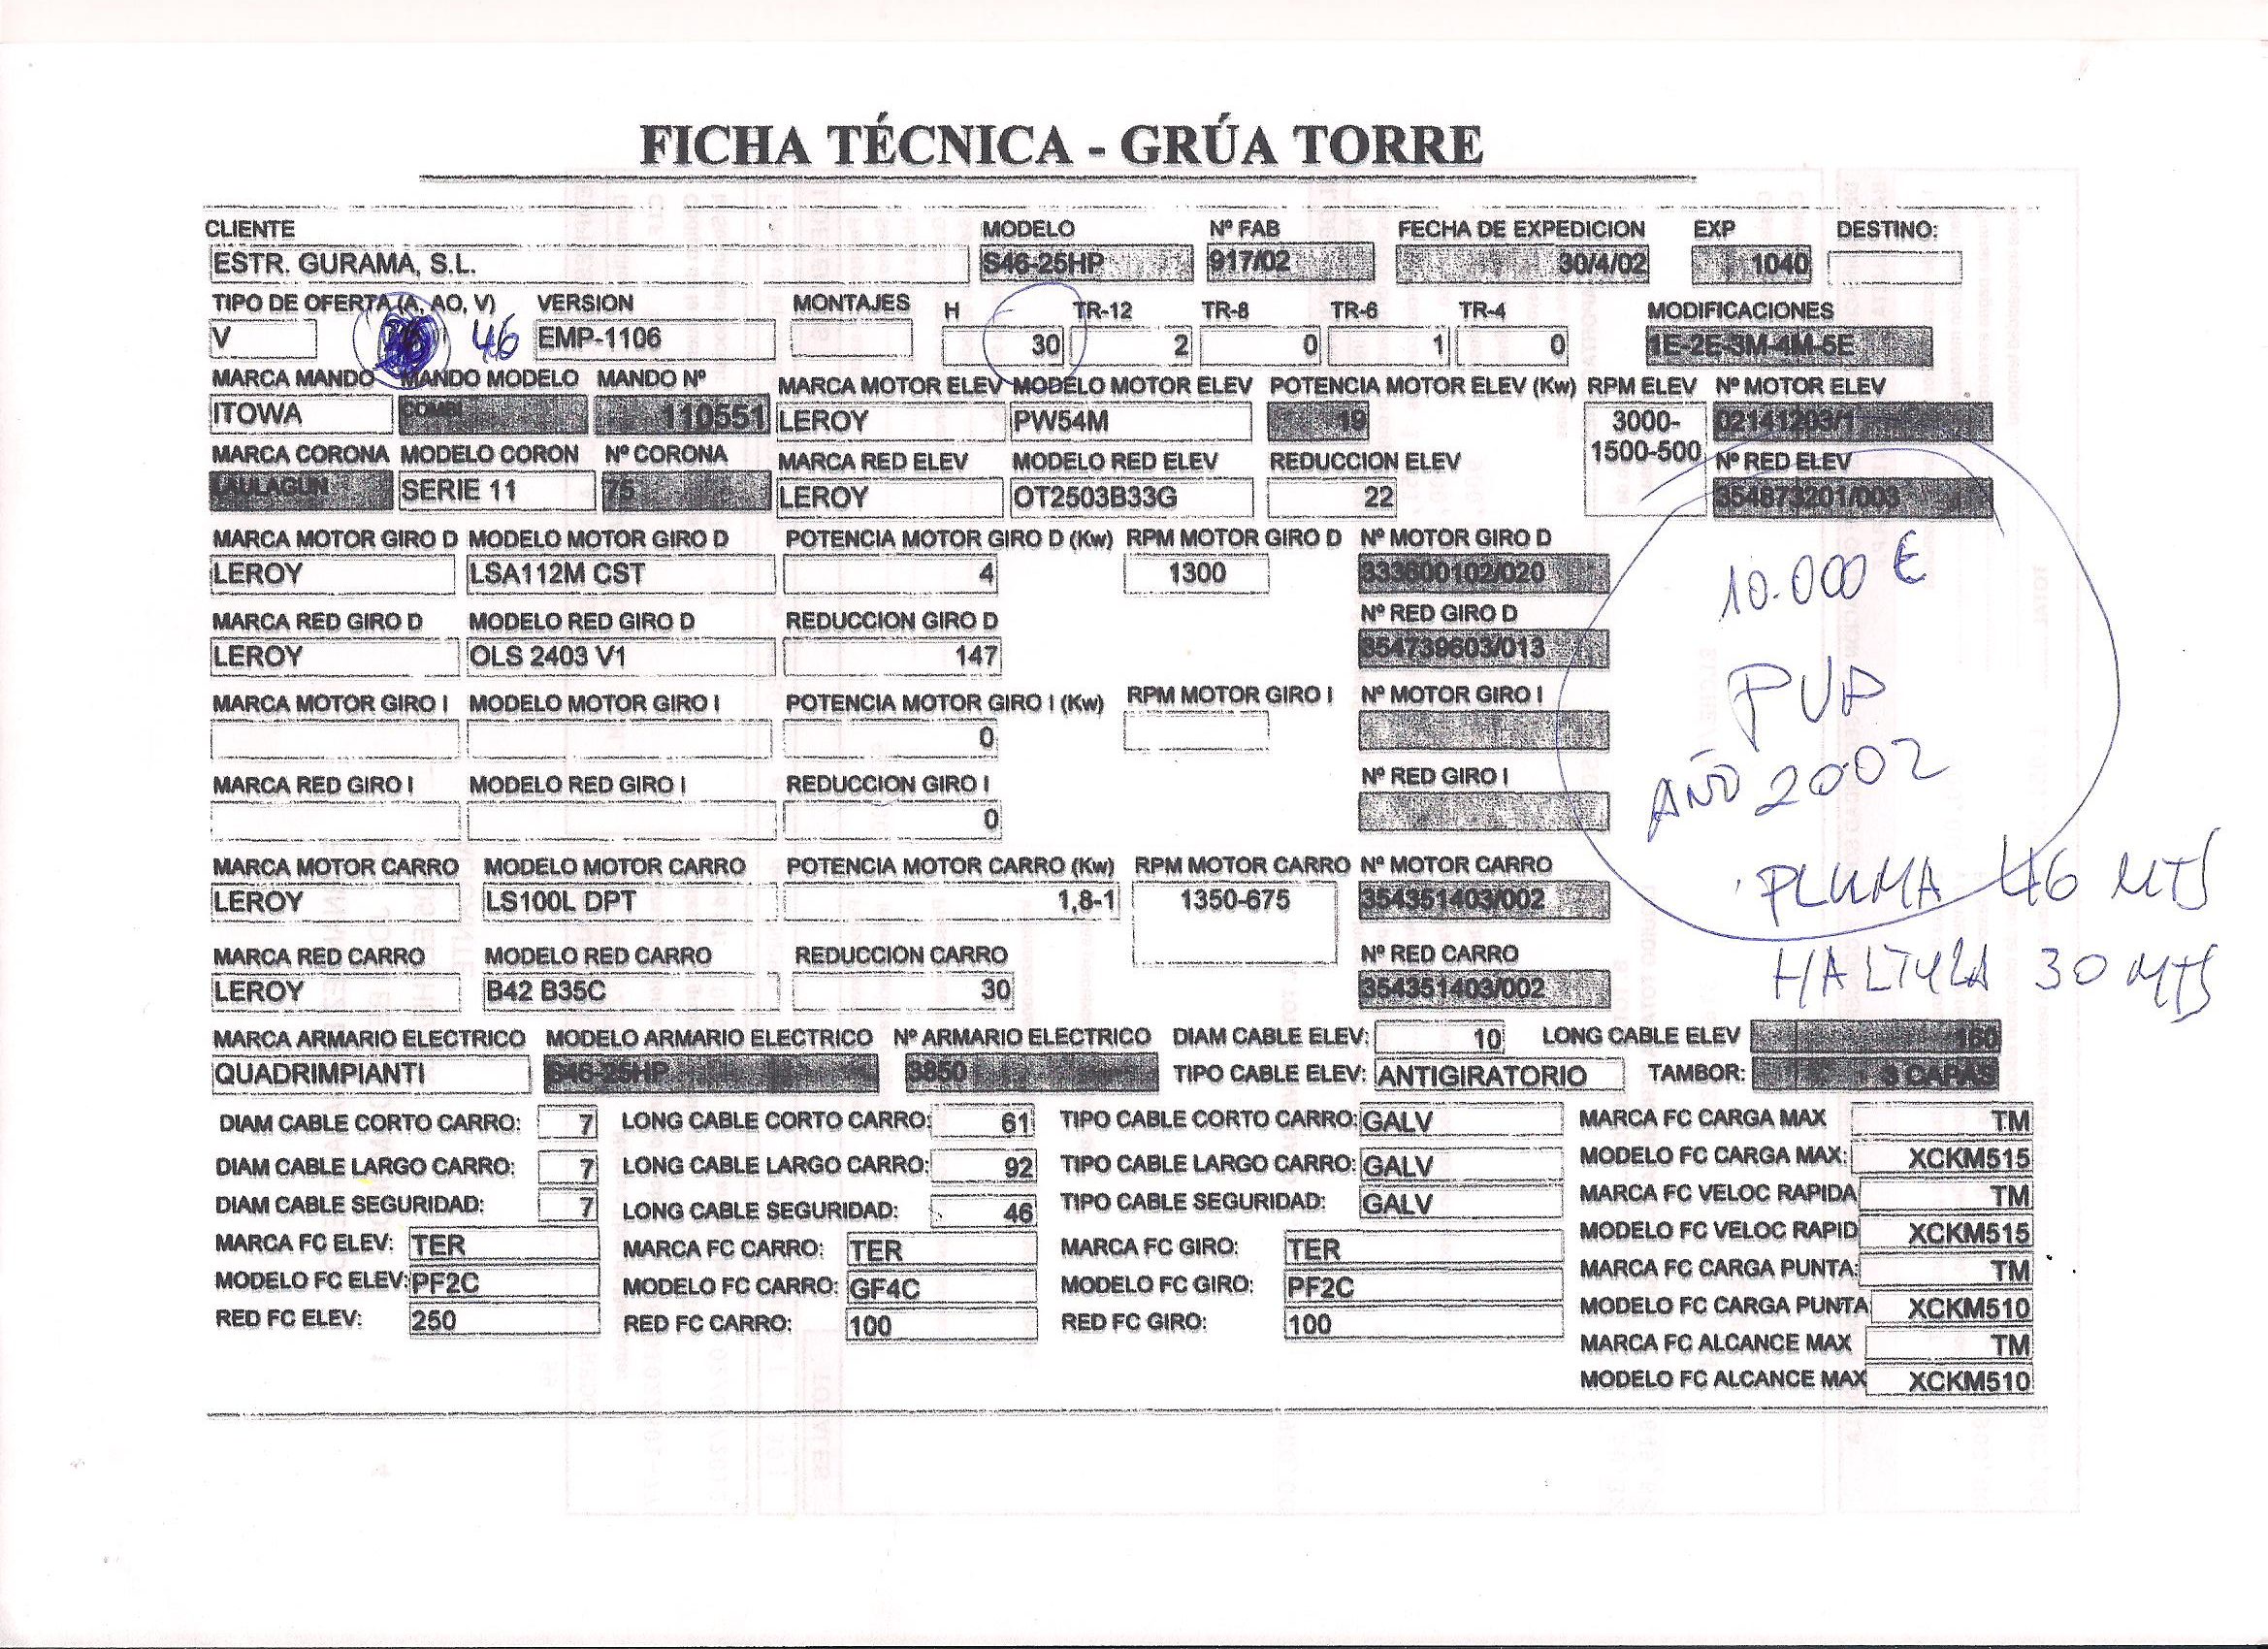 FICHA TÉCNICA - GRÚA TORRE
CLIENTE MODELO Nº FAB FECHA DE EXPEDICION EXP DESTINO:
ESTR. GURAMA, S.L. S46-25HP 917/02 30/4/02 1040
TIPO DE OFERTA (A, AO, V) VERSION MONTAJES H TR-12 TR-8 TR-6 TR-4 MODIFICACIONES
V 46 EMP-1106 30 2 0 1 0 1E-2E-3M-4M-5E
MARCA MANDO MANDO MODELO MANDO Nº MARCA MOTOR ELEV MODELO MOTOR ELEV POTENCIA MOTOR ELEV (Kw) RPM ELEV Nº MOTOR ELEV
ITOWA COMBI 110551 LEROY PW54M 19 3000-1500-500 02141203/1
MARCA CORONA MODELO CORON Nº CORONA MARCA RED ELEV MODELO RED ELEV REDUCCION ELEV Nº RED ELEV
LAULAGUN SERIE 11 75 LEROY OT2503B33G 22 354873201/003
MARCA MOTOR GIRO D MODELO MOTOR GIRO D POTENCIA MOTOR GIRO D (Kw) RPM MOTOR GIRO D Nº MOTOR GIRO D
LEROY LSA112M CST 4 1300 333600102/020
10.000 €
MARCA RED GIRO D MODELO RED GIRO D REDUCCION GIRO D Nº RED GIRO D
LEROY OLS 2403 V1 147 354739603/013
PVP
MARCA MOTOR GIRO I MODELO MOTOR GIRO I POTENCIA MOTOR GIRO I (Kw) RPM MOTOR GIRO I Nº MOTOR GIRO I
0
AÑO 2002
MARCA RED GIRO I MODELO RED GIRO I REDUCCION GIRO I Nº RED GIRO I
0
MARCA MOTOR CARRO MODELO MOTOR CARRO POTENCIA MOTOR CARRO (Kw) RPM MOTOR CARRO Nº MOTOR CARRO
LEROY LS100L DPT 1,8-1 1350-675 354351403/002
PLUMA 46 MTS
MARCA RED CARRO MODELO RED CARRO REDUCCION CARRO Nº RED CARRO
LEROY B42 B35C 30 354351403/002
HALTURA 30 MTS
MARCA ARMARIO ELECTRICO MODELO ARMARIO ELECTRICO Nº ARMARIO ELECTRICO DIAM CABLE ELEV: 10 LONG CABLE ELEV 160
QUADRIMPIANTI S46-25HP 3850 TIPO CABLE ELEV: ANTIGIRATORIO TAMBOR: 3 CAPAS
DIAM CABLE CORTO CARRO: 7 LONG CABLE CORTO CARRO: 61 TIPO CABLE CORTO CARRO: GALV MARCA FC CARGA MAX TM
DIAM CABLE LARGO CARRO: 7 LONG CABLE LARGO CARRO: 92 TIPO CABLE LARGO CARRO: GALV MODELO FC CARGA MAX: XCKM515
DIAM CABLE SEGURIDAD: 7 LONG CABLE SEGURIDAD: 46 TIPO CABLE SEGURIDAD: GALV MARCA FC VELOC RAPIDA TM
MODELO FC VELOC RAPID XCKM515
MARCA FC ELEV: TER MARCA FC CARRO: TER MARCA FC GIRO: TER MARCA FC CARGA PUNTA: TM
MODELO FC ELEV: PF2C MODELO FC CARRO: GF4C MODELO FC GIRO: PF2C MODELO FC CARGA PUNTA XCKM510
RED FC ELEV: 250 RED FC CARRO: 100 RED FC GIRO: 100 MARCA FC ALCANCE MAX TM
MODELO FC ALCANCE MAX XCKM510